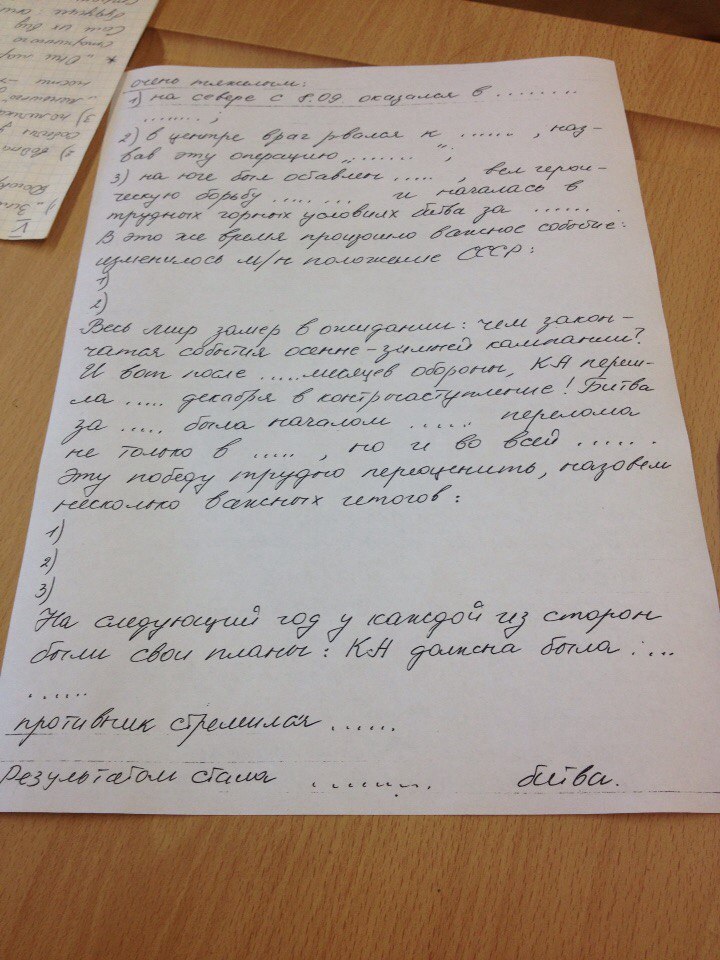 очень тяжелым:
1) на севере с 8.09 оказался в ........
....... ;
2) в центре враг рвался к ...... , наз-
вав эту операцию „ ....... “ ;
3) на юге был оставлен ..... , вел герои-
ческую борьбу ..... ... и началась в
трудных горных условиях битва за ...... .
В это же время произошло важное событие:
изменилось м/н положение СССР:
1)
2)
Весь мир замер в ожидании: чем закон-
чатся события осенне-зимней кампании?
И вот после .....месяцев обороны, КА переш-
ла ..... декабря в контрнаступление! Битва
за ..... была началом ..... перелома
не только в ..... , но и во всей ..... .
Эту победу трудно переоценить, назовем
несколько важных итогов:
1)
2)
3)
На следующий год у каждой из сторон
были свои планы: КА должна была : ....
......
противник стремился ......
Результатом стала ........ битва.
V